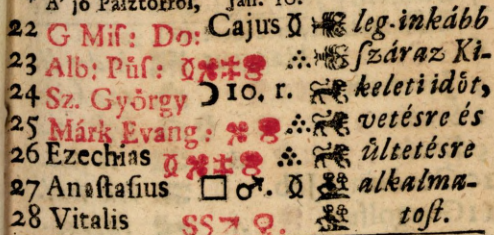 A' jó Pásztorról, Ján. 10.
22 G Mis: Do: Cajus leg-inkább
23 Alb: Püs: ſzáraz Ki-
24 Sz. György ☽ 10. r. keleti idöt,
25 Márk Evang: vetésre és
26 Ezechias ültetésre
27 Anaſtaſius □ ♂. alkalma-
28 Vitalis ♀. toſt.